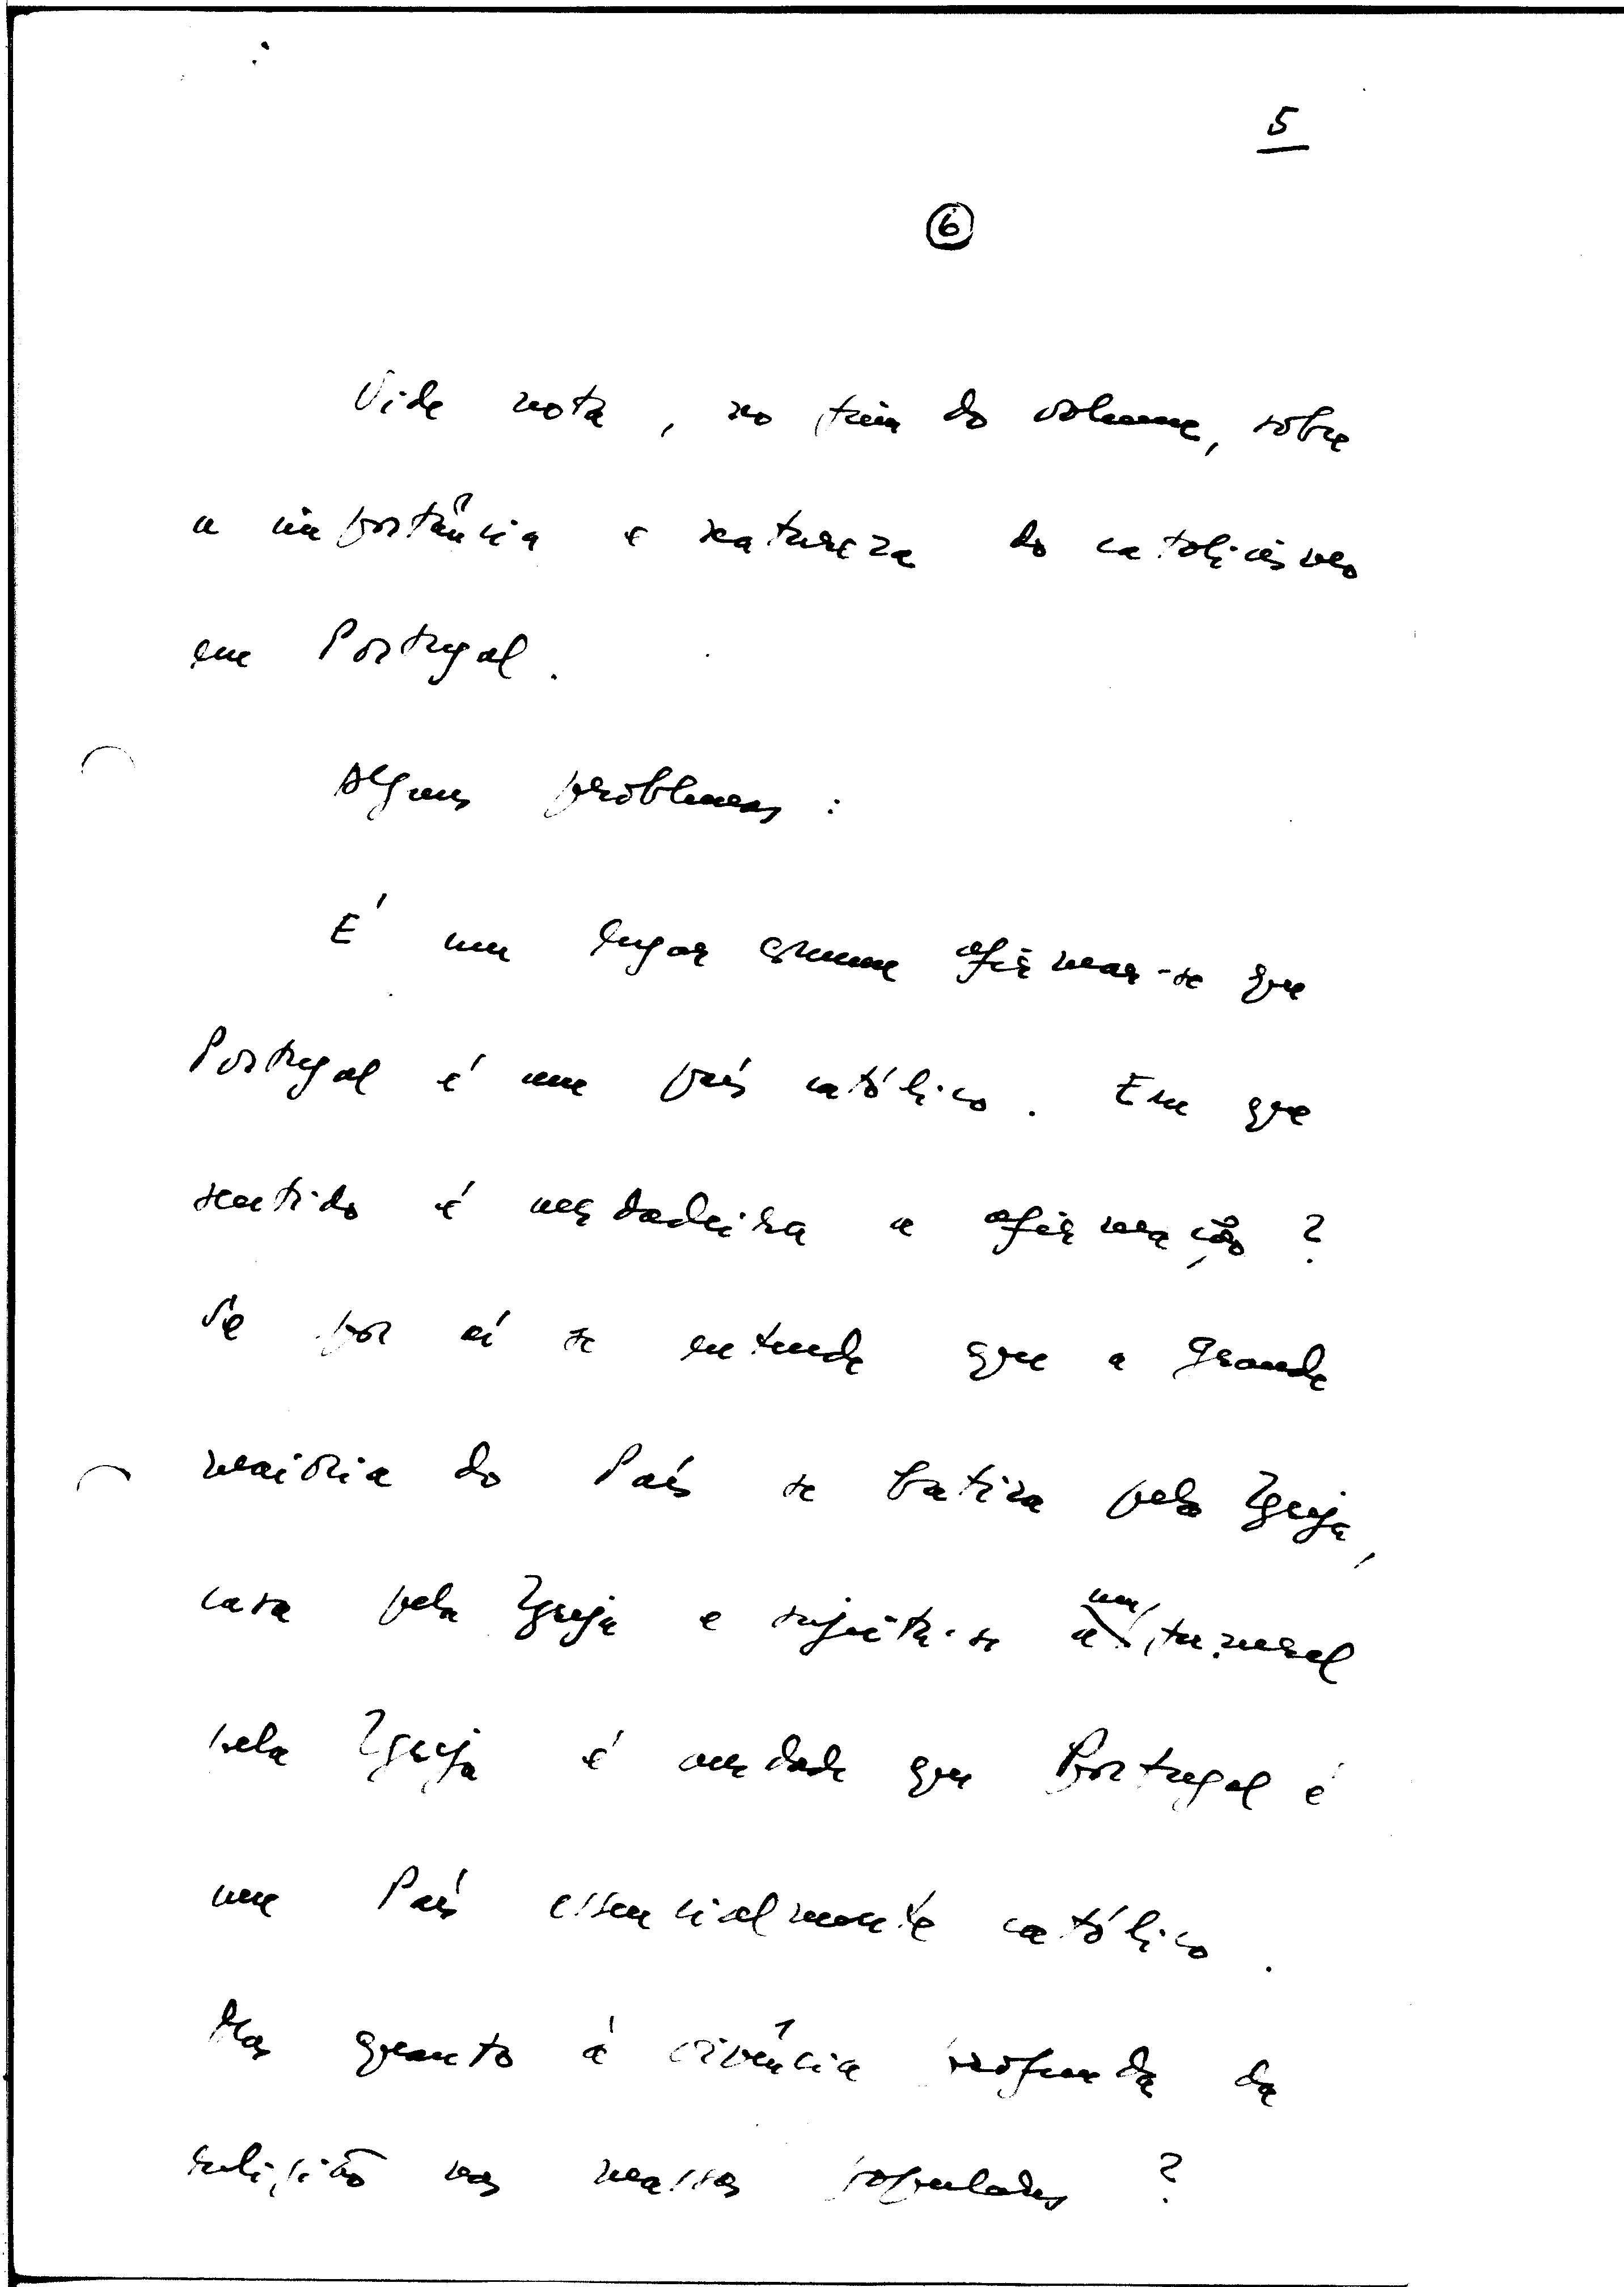 5
6
Vide nota, no fim do volume, sobre
a importância e natureza do catolicismo
em Portugal.
Alguns problemas :
É um lugar comum afirmar-se que
Portugal é um país católico. Em que
sentido é verdadeira a afirmação ?
Se por aí se entende que a grande
maioria do País se batiza pela Igreja,
casa pela Igreja e sujeita-se a um funeral
pela Igreja é verdade que Portugal é
um País essencialmente católico.
Mas quanto à vivência profunda da
religião nas massas populares ?